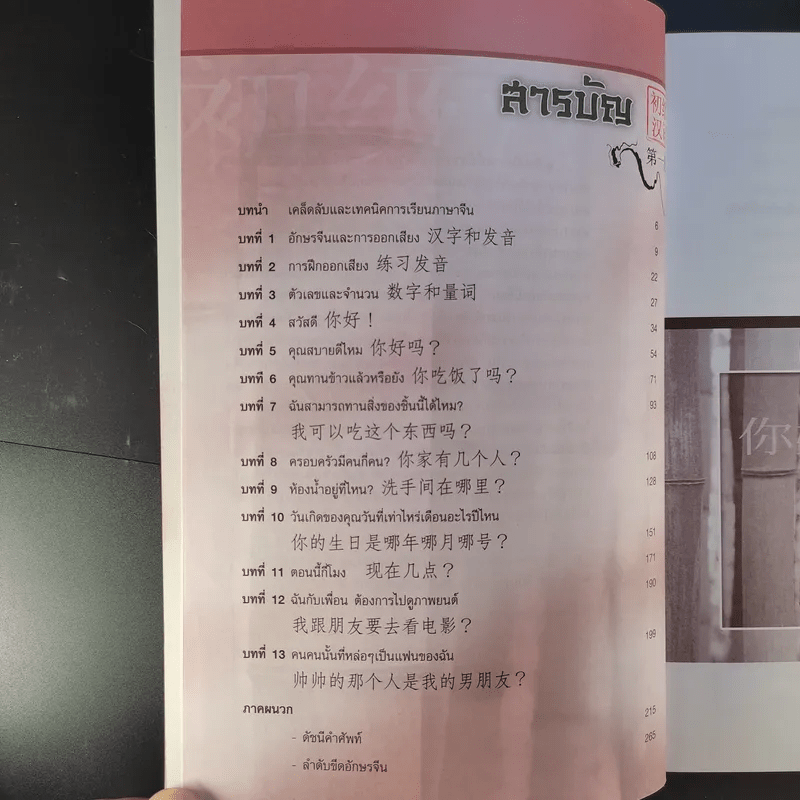 初级
สารบัญ
初
汉
第一
บทนำ เคล็ดลับและเทคนิคการเรียนภาษาจีน 6
บทที่ 1 อักษรจีนและการออกเสียง 汉字和发音 9
บทที่ 2 การฝึกออกเสียง 练习发音 22
บทที่ 3 ตัวเลขและจำนวน 数字和量词 27
บทที่ 4 สวัสดี 你好！ 34
บทที่ 5 คุณสบายดีไหม 你好吗？ 54
บทที่ 6 คุณทานข้าวแล้วหรือยัง 你吃饭了吗？ 71
บทที่ 7 ฉันสามารถทานสิ่งของชิ้นนี้ได้ไหม? 93
我可以吃这个东西吗？
บทที่ 8 ครอบครัวมีคนกี่คน? 你家有几个人？ 108
บทที่ 9 ห้องน้ำอยู่ที่ไหน? 洗手间在哪里？ 128
บทที่ 10 วันเกิดของคุณวันที่เท่าไหร่เดือนอะไรปีไหน
你的生日是哪年哪月哪号？ 151
171
บทที่ 11 ตอนนี้กี่โมง 现在几点？ 190
บทที่ 12 ฉันกับเพื่อน ต้องการไปดูภาพยนต์
我跟朋友要去看电影？ 199
บทที่ 13 คนคนนั้นที่หล่อๆเป็นแฟนของฉัน
帅帅的那个人是我的男朋友？
ภาคผนวก 215
- ดัชนีคำศัพท์ 265
- ลำดับขีดอักษรจีน
你